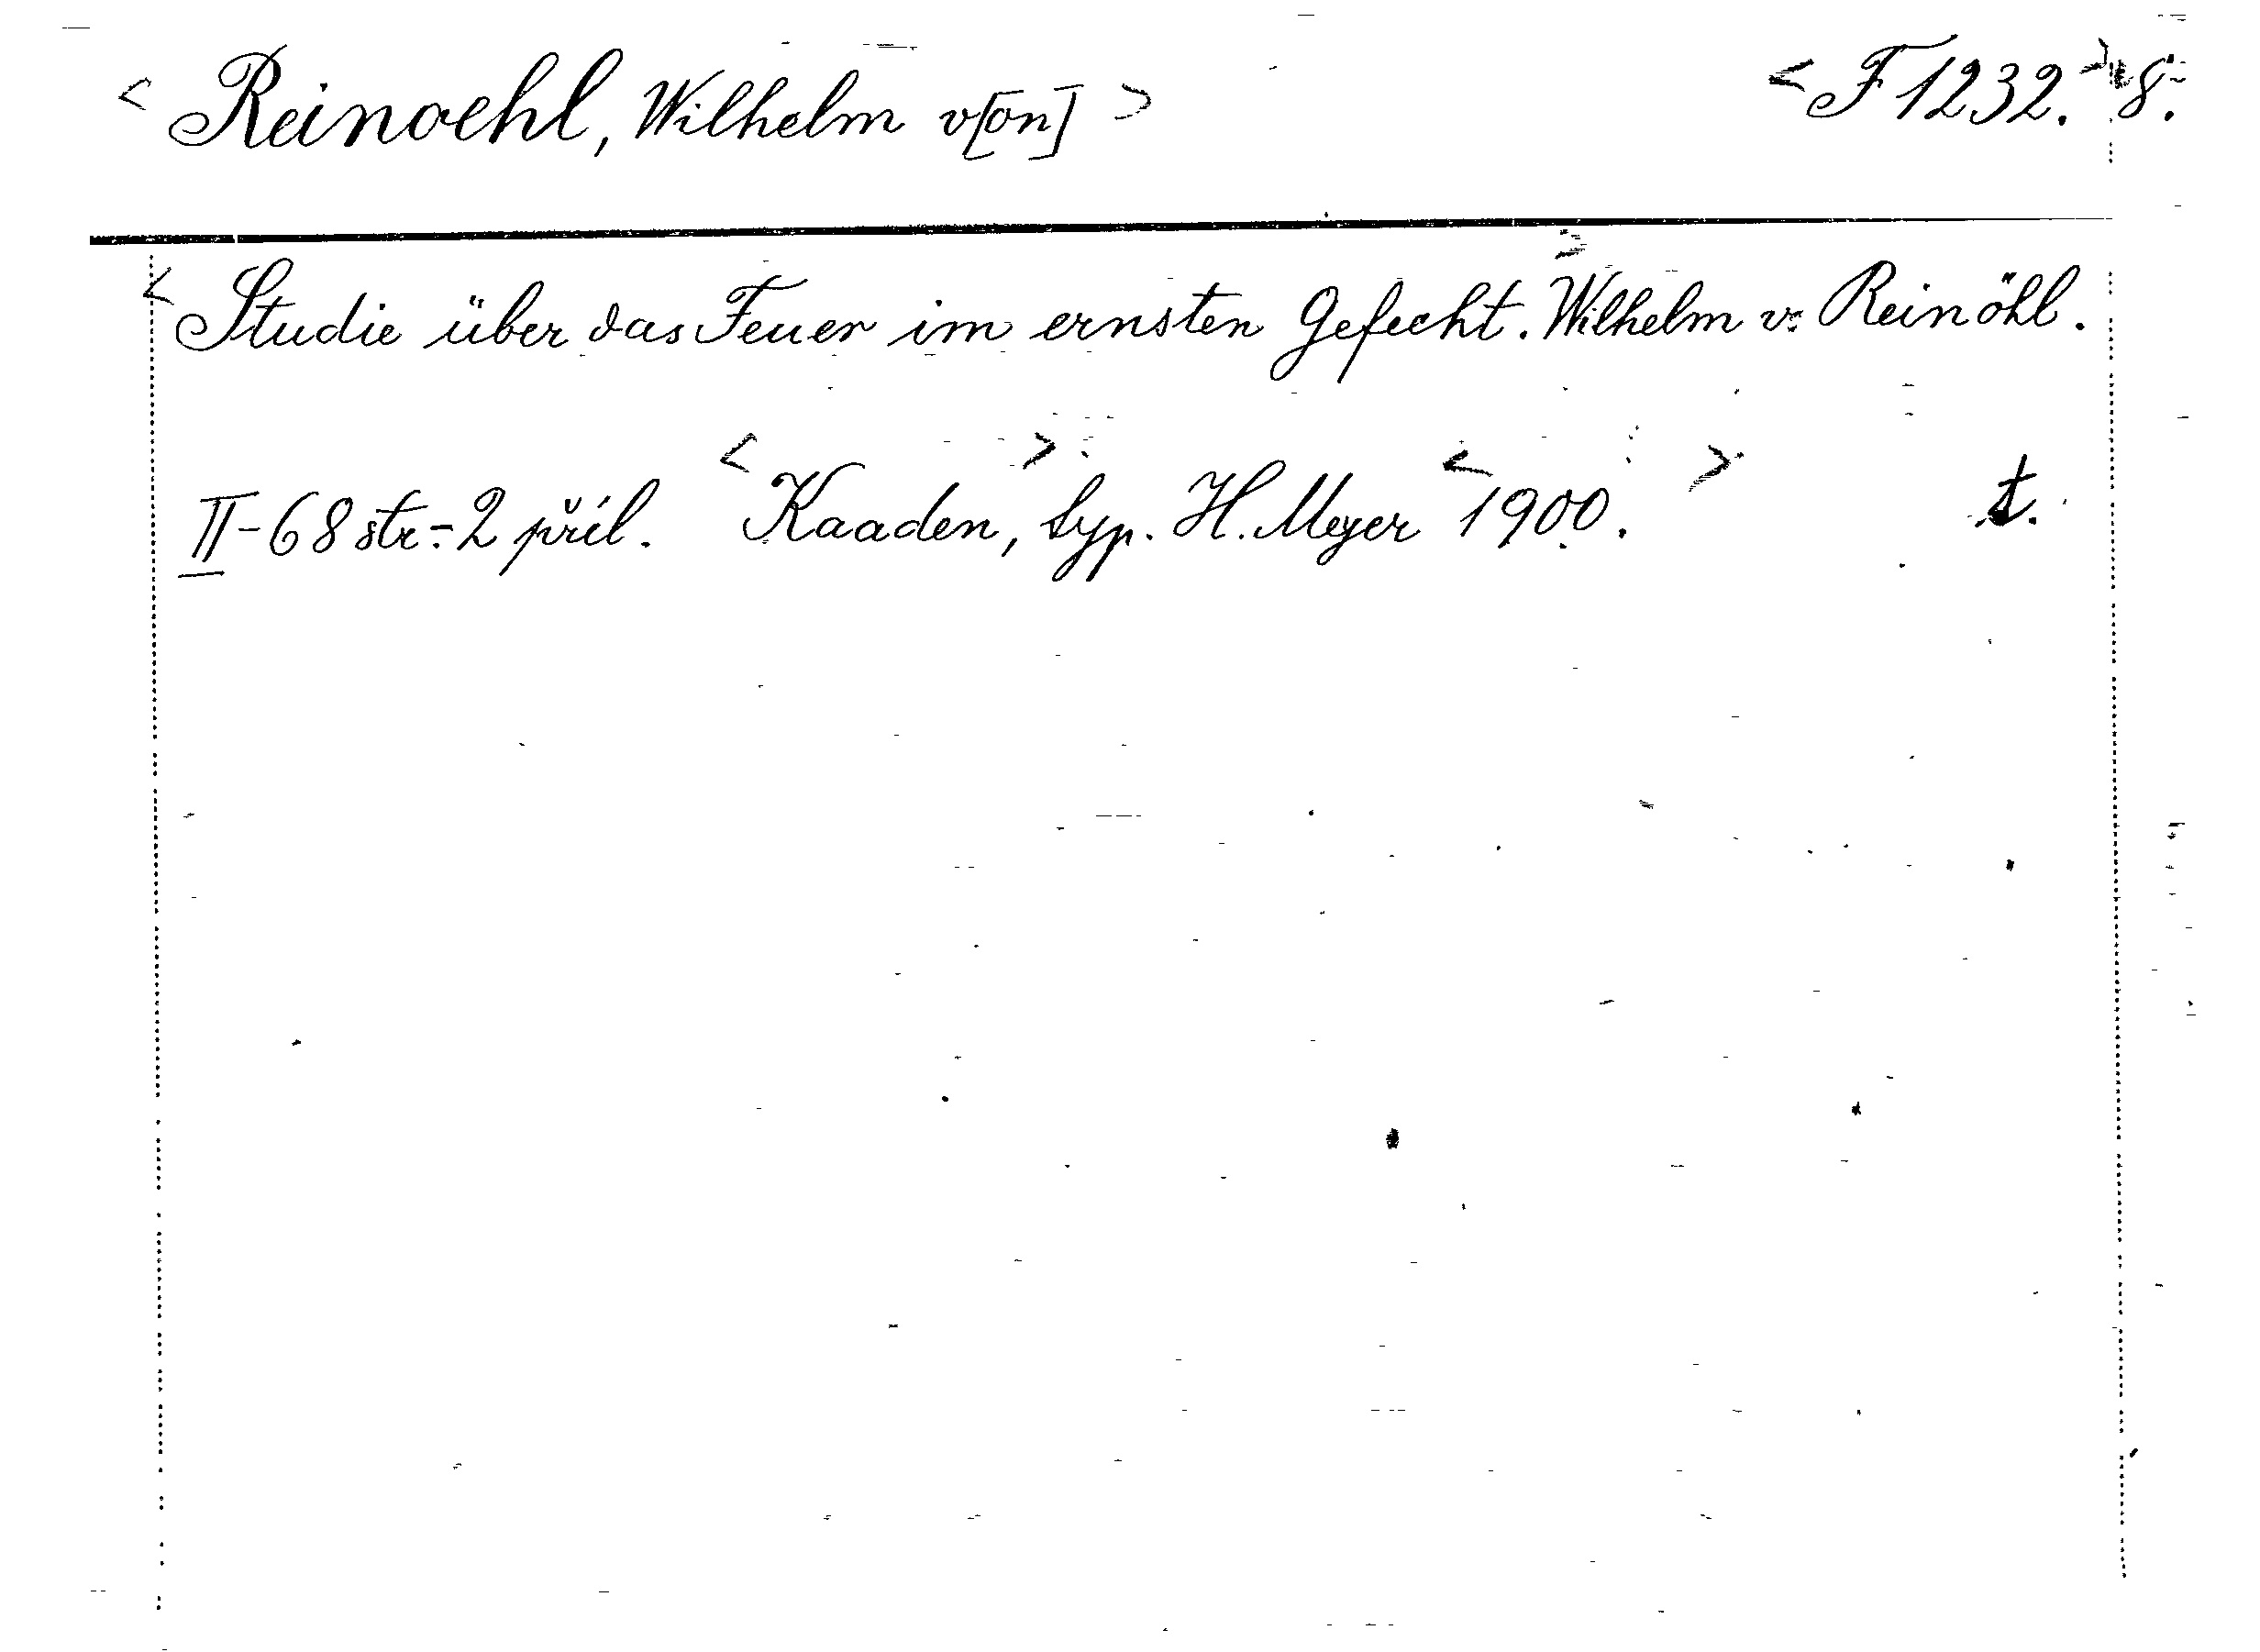 < Reinoehl, Wilhelm v[on] > < F 1232. > 8.
< Studie über das Feuer im ernsten Gefecht. > Wilhelm v. Reinöhl.
II-68 str.-2 příl. < Kaaden, > typ. H. Meyer < 1900. > t.